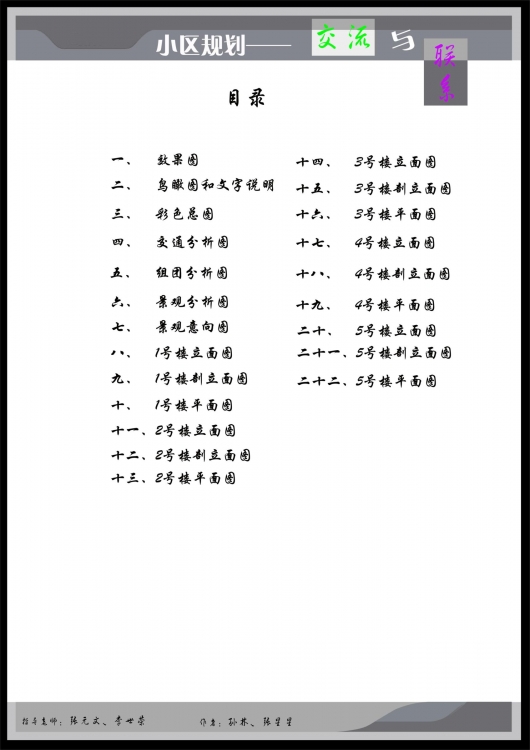 小区规划——交流与联系
目录
一、 效果图
二、 鸟瞰图和文字说明
三、 彩色总图
四、 交通分析图
五、 组团分析图
六、 景观分析图
七、 景观意向图
八、 1号楼立面图
九、 1号楼剖立面图
十、 1号楼平面图
十一、2号楼立面图
十二、2号楼剖立面图
十三、2号楼平面图
十四、 3号楼立面图
十五、 3号楼剖立面图
十六、 3号楼平面图
十七、 4号楼立面图
十八、 4号楼剖立面图
十九、 4号楼平面图
二十、 5号楼立面图
二十一、5号楼剖立面图
二十二、5号楼平面图
指导老师：张元文、李世荣 作者：孙林、张星星